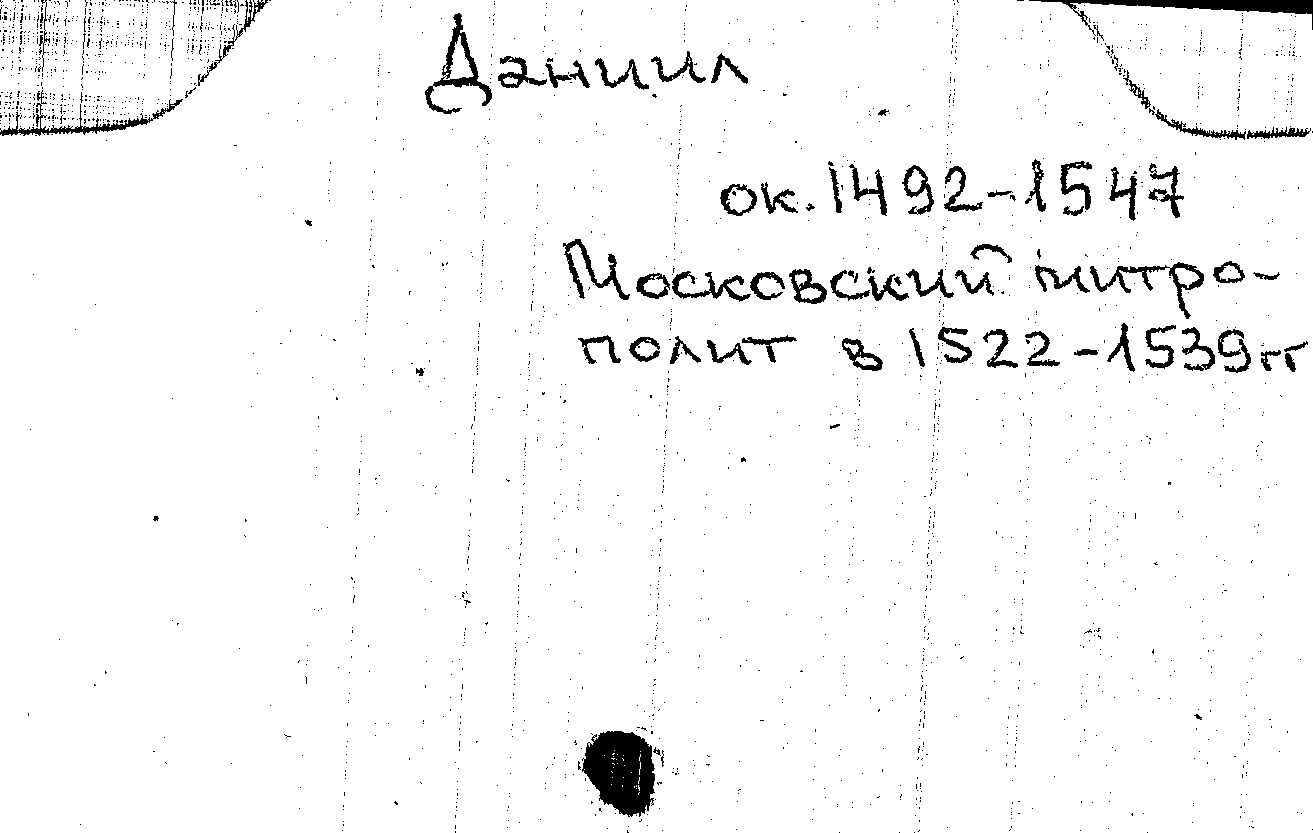 Даниил
ок. 1492-1547
Московский митро-
полит в 1522-1539гг